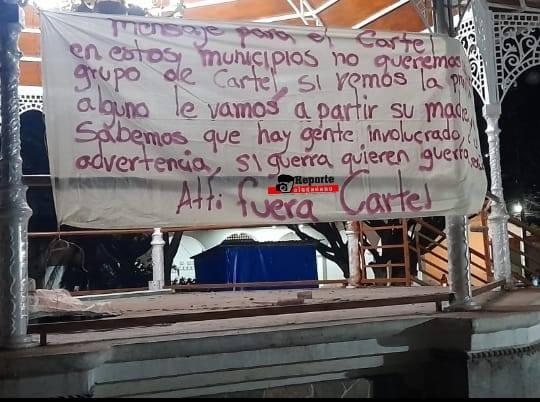 Mensaje para el Cartel
en estos municipios no queremos
grupo de Cartel si vemos la
alguno le vamos a partir su madre
Sabemos que hay gente involucrado,
advertencia, si guerra quieren guerra
Atti fuera Cartel
Reporte
CIUDADANO